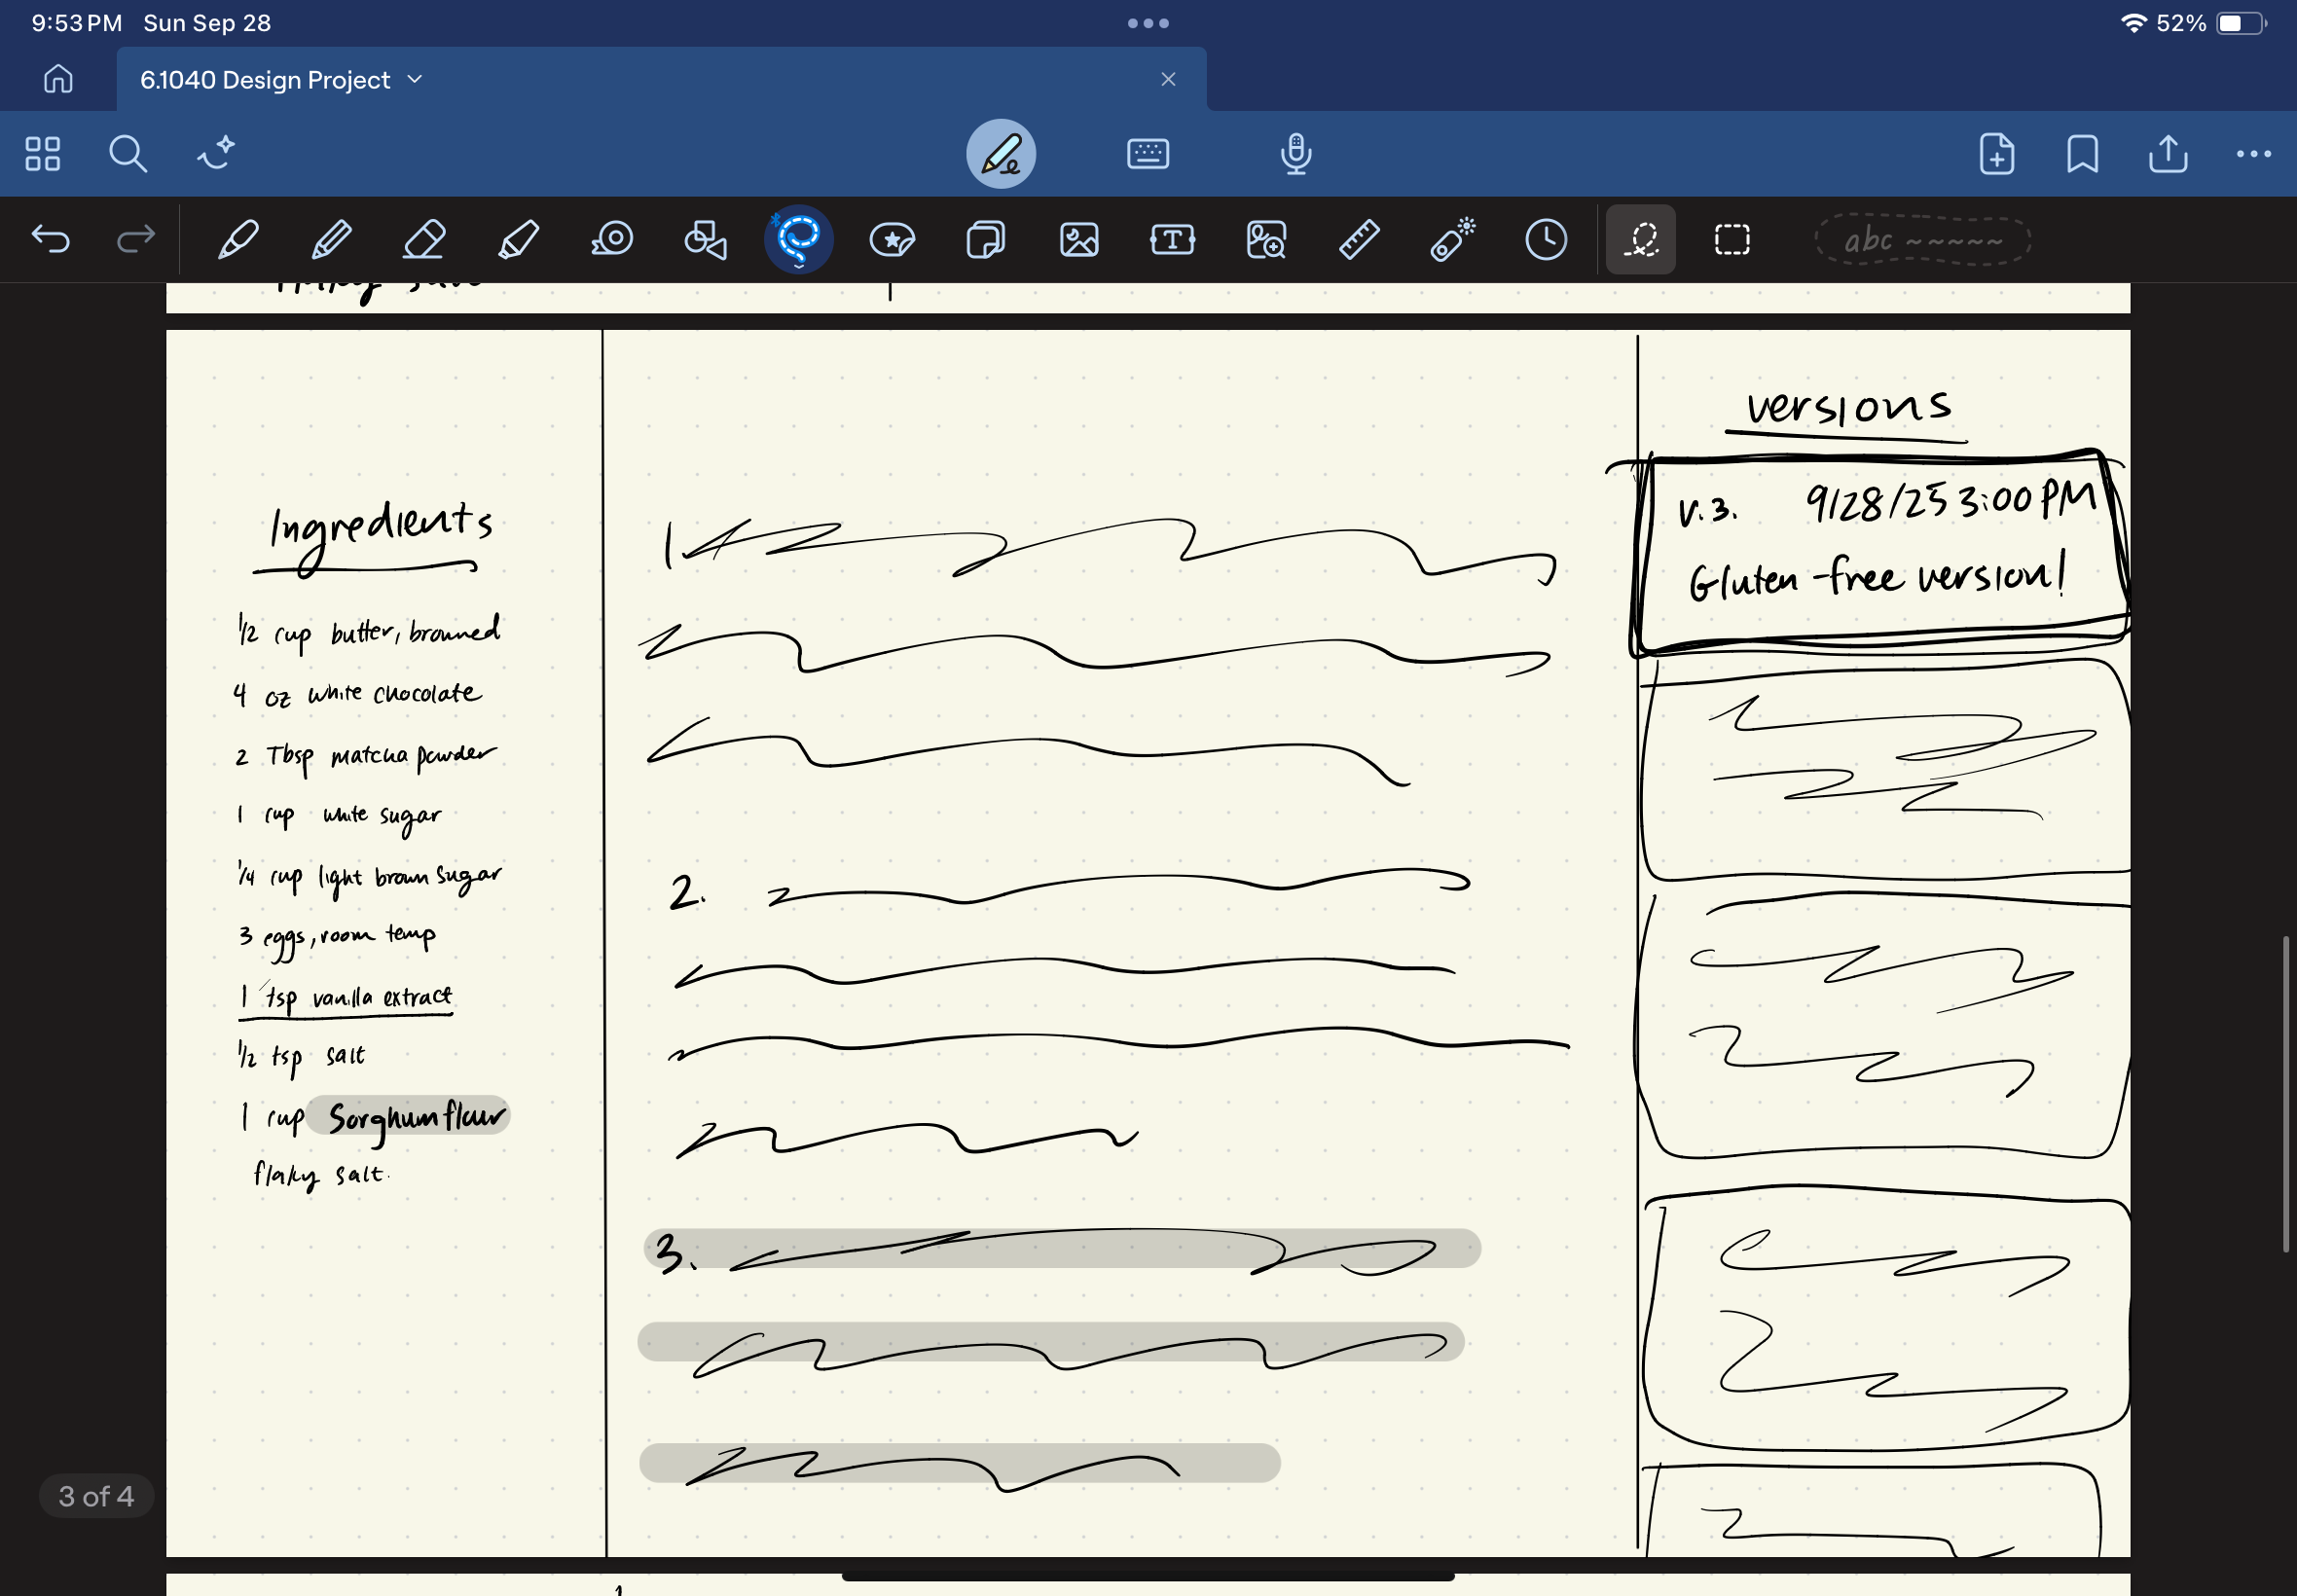 9:53 PM Sun Sep 28
52%
6.1040 Design Project
abc
Ingredients
1/2 cup butter, browned
4 oz white chocolate
2 Tbsp matcha powder
1 cup white sugar
1/4 cup light brown sugar
3 eggs, room temp
1 tsp vanilla extract
1/2 tsp salt
1 cup Sorghum flour
flaky salt.
1
2.
3.
versions
V.3. 9/28/25 3:00 PM
Gluten-free version!
3 of 4